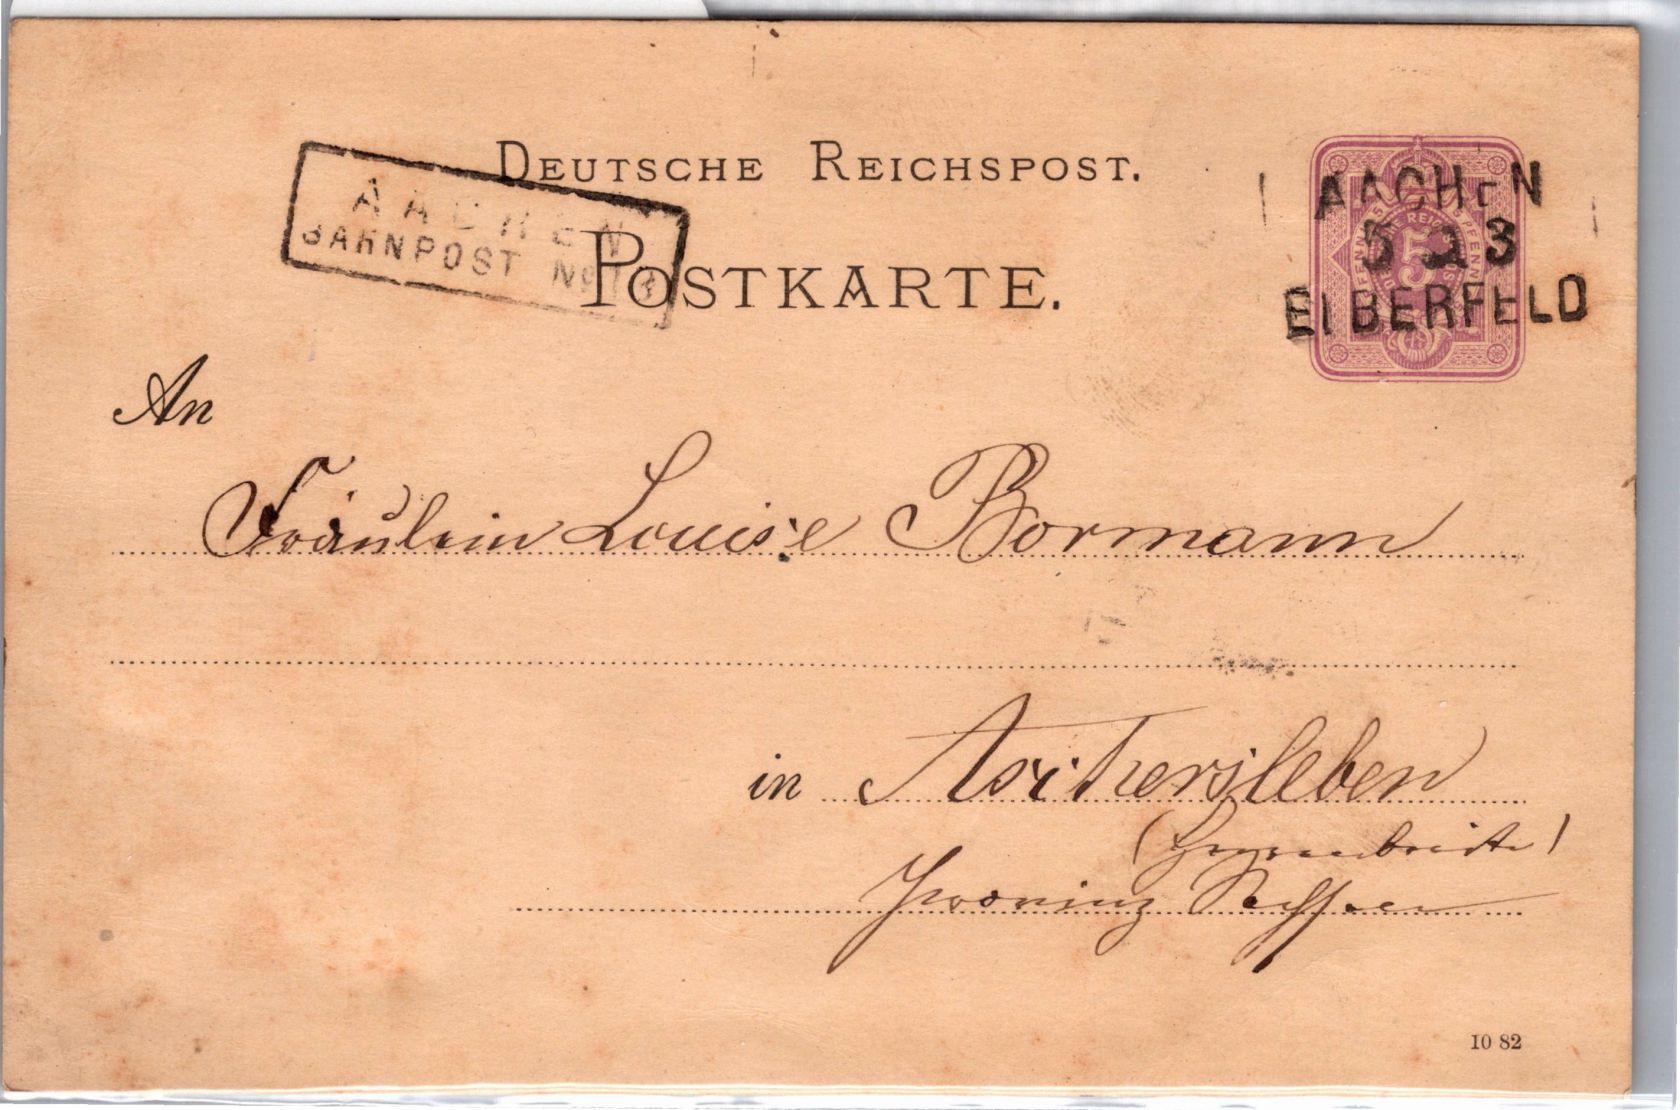 DEUTSCHE REICHSPOST.
AACHEN
BAHNPOST No
POSTKARTE.
AACHEN
5 2 3
ELBERFELD
5
PFENNIG
An
Fräulein Louise Bormann
in Aschersleben
Provinz Sachsen
10 82